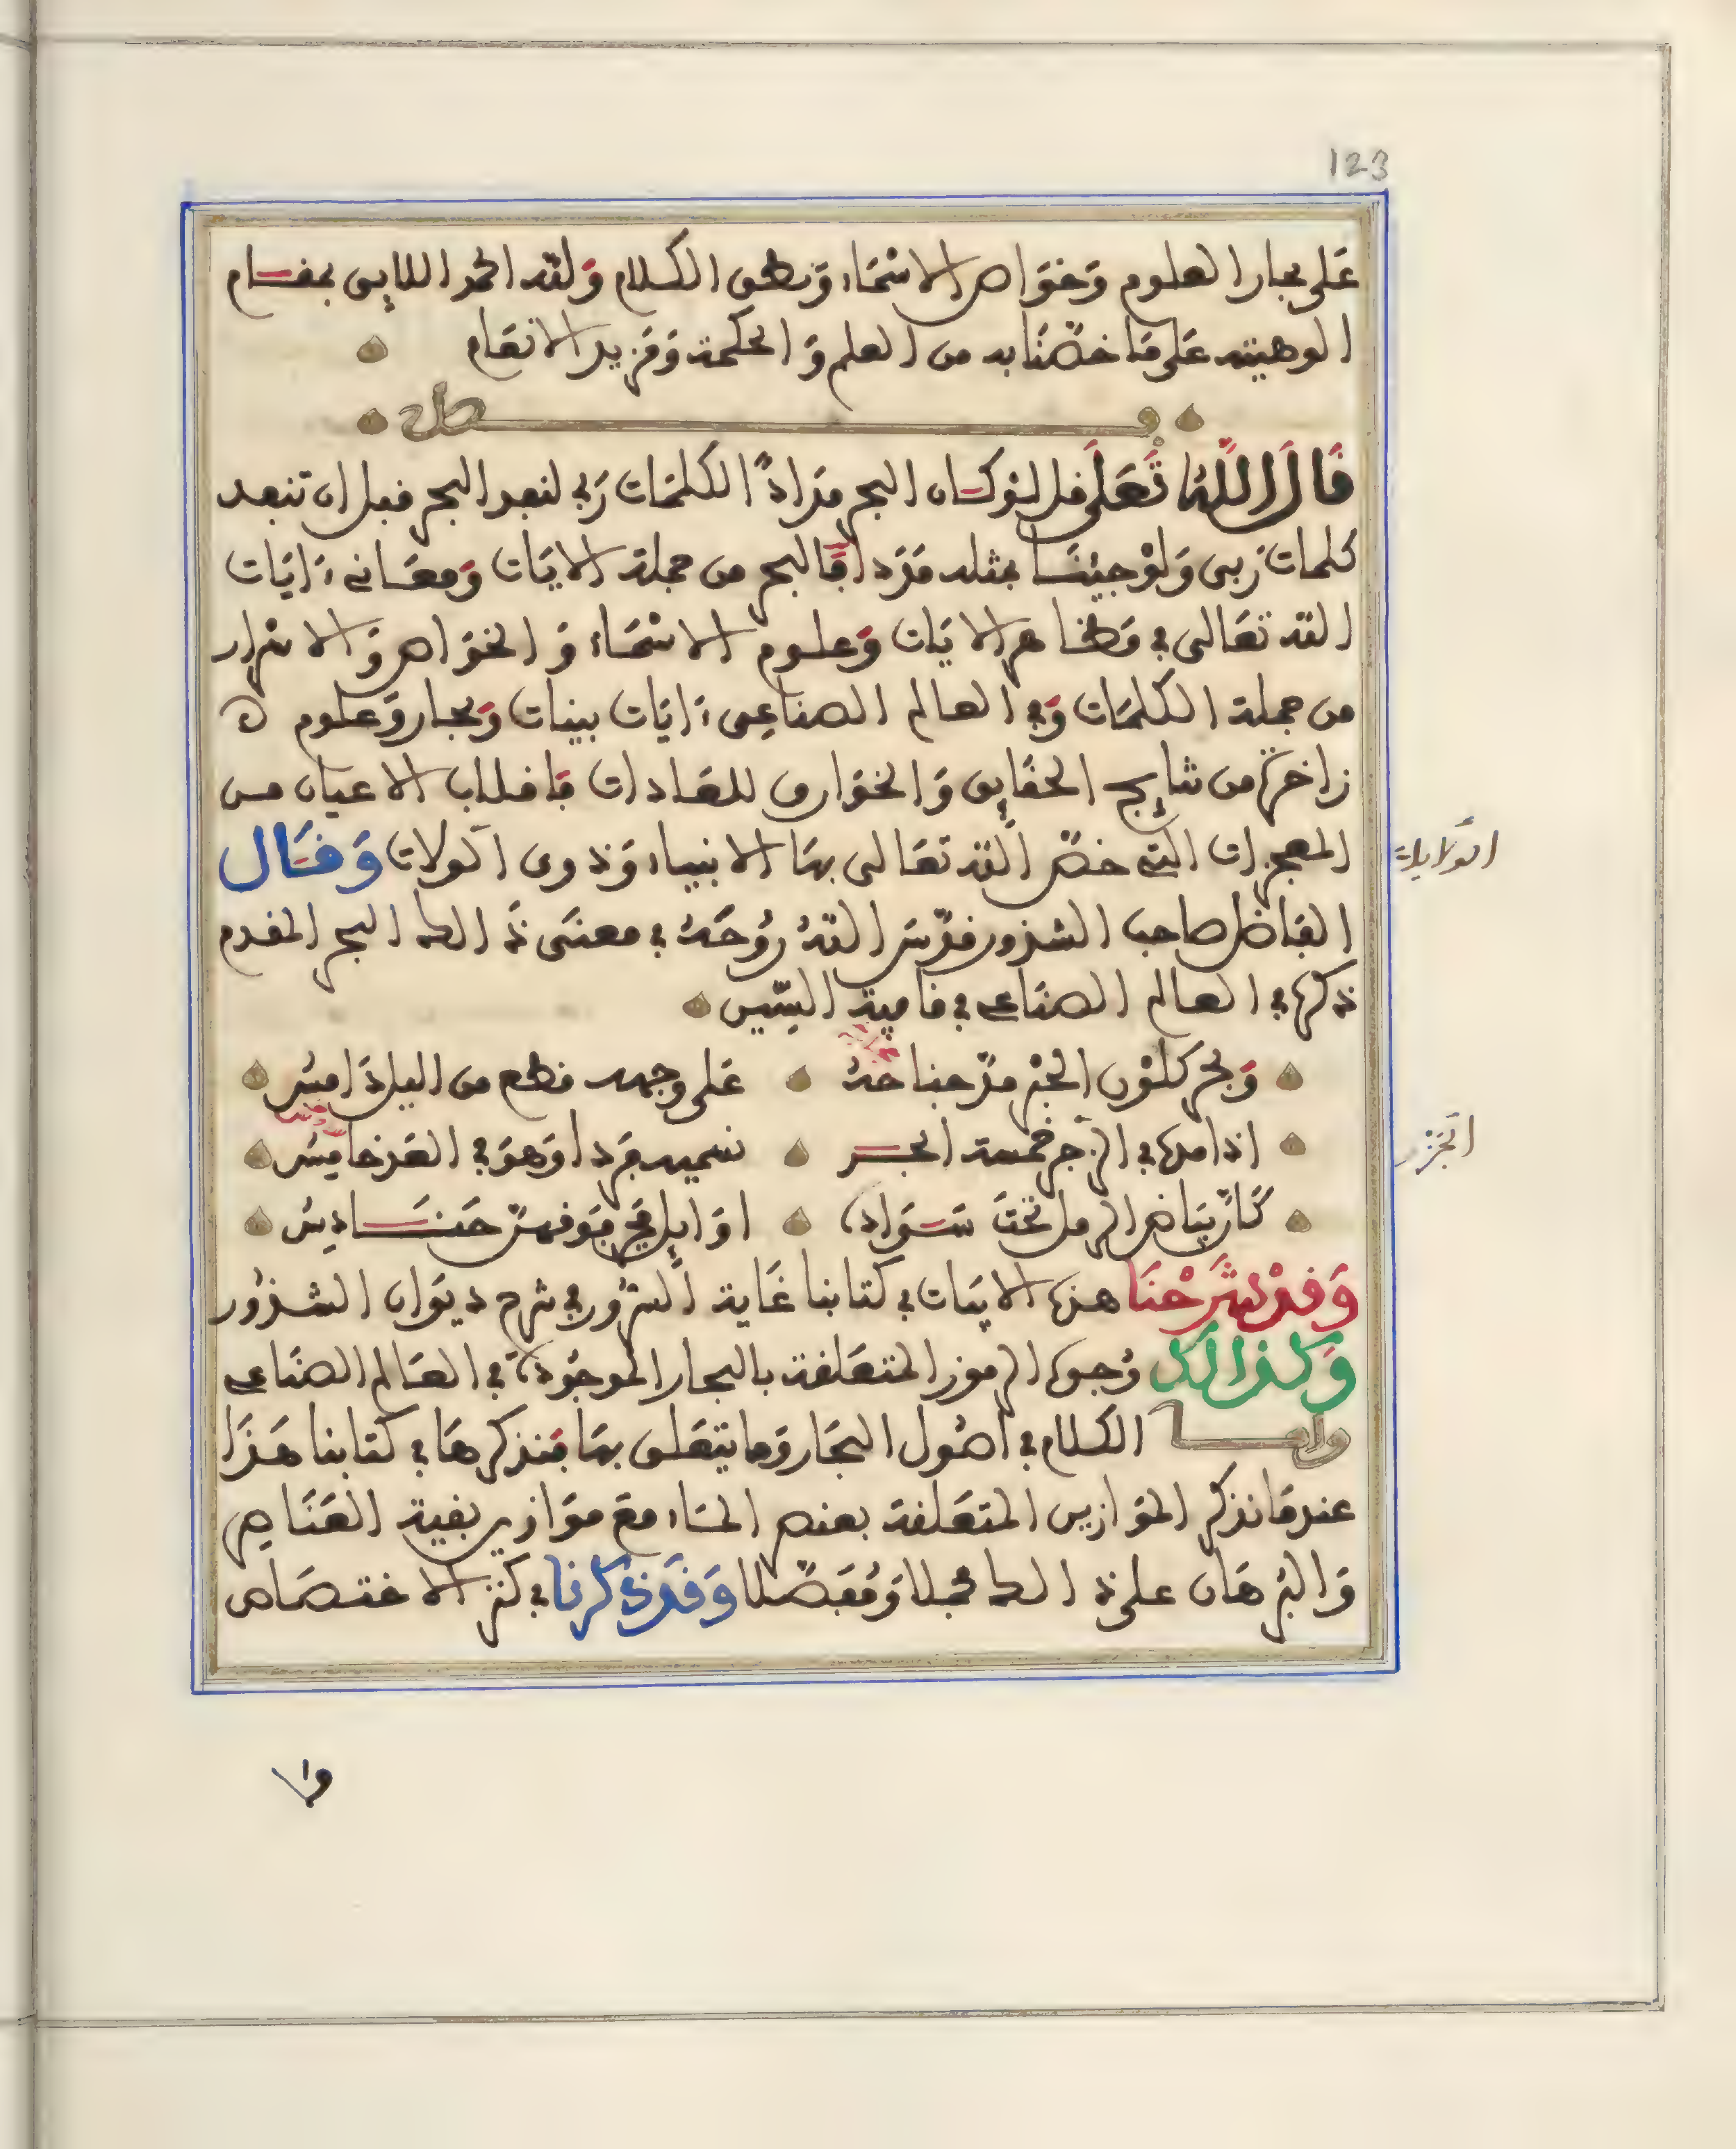 123
على بحار العلوم وخواص الاسماء ونطق الكلام ولله الحمد اللايق بمقام
الوهيته على ما خصّنا به من العلم والحكمة ومزيد الانعام
فصل
قَالَ اللّهُ تَعَلَى قل لو كان البحر مدادًا لكلمات ربي لنفد البحر قبل ان تنفد
كلمات ربي ولو جيئنا بمثله مددا فالبحر من جملة الايات ومعاني ءايات
الله تعالى في مظاهر الايات وعلوم الاسماء والخواص والاسرار
من جملة الكلمات وفي العالم الصناعي ءايات بينات وبحار وعلوم
زاخرة من نتايج الحقايق والخوارق للعادات بانقلاب الاعيان من
المعجزات التي خصّ الله تعالى بها الانبياء وذوى الولات وَقَال
الولايات
الفاضل صاحب الشذور قدّس اللهُ رُوحَهُ في معنى ذالك البحر المقدم
ذكره في العالم الصناعي في قافية السّين
وبحر كلون الحبر مدّ جناحهُ على وجهه قطع من الليل دامسُ
اذا مده في الجزر خمسة ابحر نسميه فردا وهو في العد خامسُ
الجزر
كأنّ بياض الرمل تحت سواده اوايل فجر فوقهنّ حنادسُ
وَقَدْ شَرَحْنَا هذه الابيات في كتابنا غاية السّرور في شرح ديوان الشذور
وكذالك وجوه الرموز المتعلقة بالبحار الموجودة في العالم الصناعي
واما الكلام في اصول البحار وما يتعلق بها فنذكرها في كتابنا هذا
عند ما نذكر الموازين المتعلقة بعنصر الماء مع موازين بقية العناصر
والبرهان على ذالك مجملا ومفصّلا وَقَد ذكرنا في كنز الاختصاص